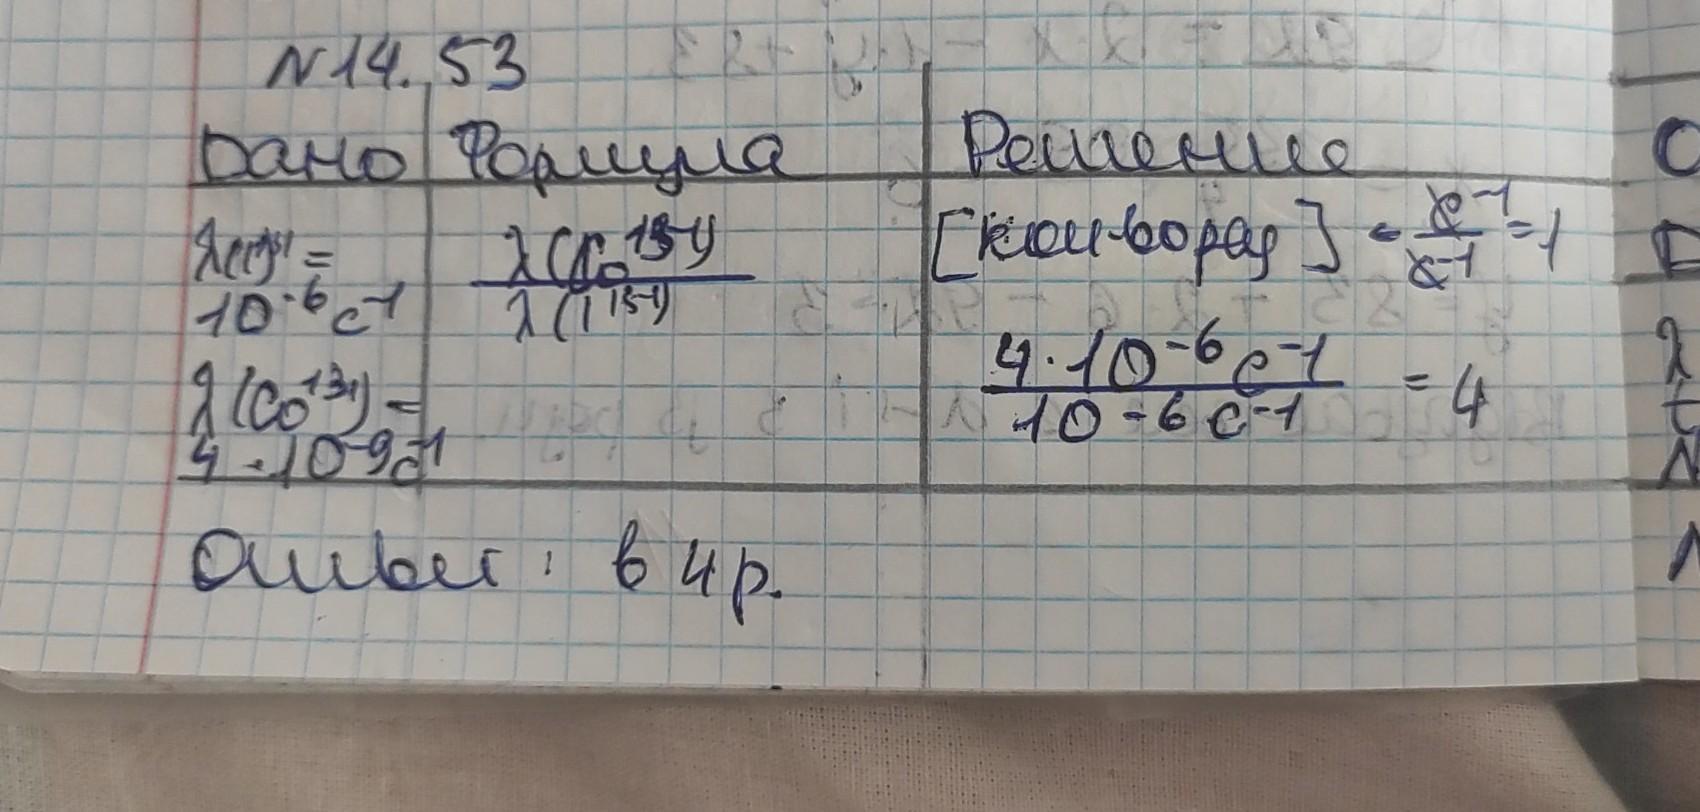 N14.53
Дано Формула Решение
λ(I¹³¹) = 
10⁻⁶ с⁻¹
λ(Co¹³¹) =
4 · 10⁻⁹ с⁻¹
λ(Co¹³⁻¹)
λ(I¹³⁻¹)
[кол-во раз] = с⁻¹ / с⁻¹ = 1
4 · 10⁻⁶ с⁻¹ / 10⁻⁶ с⁻¹ = 4
Ответ: в 4 р.